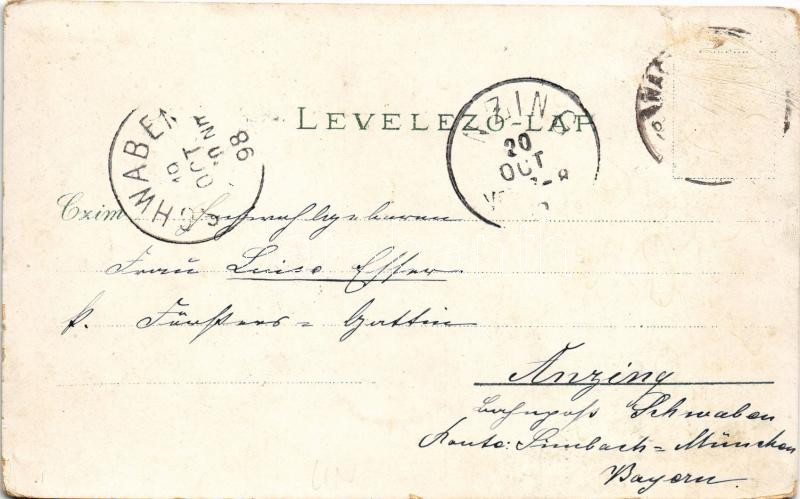 LEVELEZŐ-LAP
SCHWABEN
19
OCT
98
ANZING
20
OCT
Czim Hochwohlgeboren
Frau Luise Esser
k. Försters = Gattin
Anzing
Bahnpost Schwaben
Route: Simbach = München
Bayern.